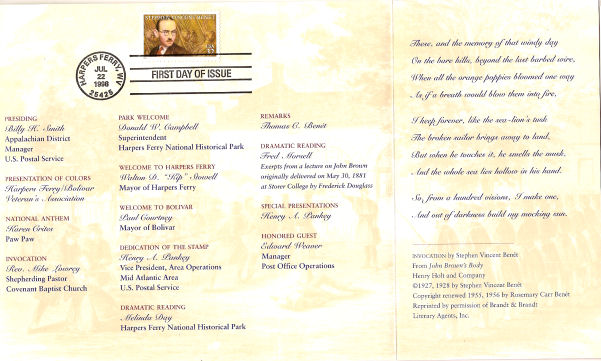 STEPHEN VINCENT BENÉT
32
USA
HARPERS FERRY, WV
JUL
22
1998
25425
FIRST DAY OF ISSUE
PRESIDING
Billy H. Smith
Appalachian District
Manager
U.S. Postal Service
PRESENTATION OF COLORS
Harpers Ferry/Bolivar
Veteran's Association
NATIONAL ANTHEM
Karen Crites
Paw Paw
INVOCATION
Rev. Mike
Shepherding Pastor
Covenant Baptist Church
PARK WELCOME
Donald W. Campbell
Superintendent
Harpers Ferry National Historical Park
WELCOME TO HARPERS FERRY
Walton D. "Kip" Stowell
Mayor of Harpers Ferry
WELCOME TO BOLIVAR
Paul Courtney
Mayor of Bolivar
DEDICATION OF THE STAMP
Henry A. Pankey
Vice President, Area Operations
Mid Atlantic Area
U.S. Postal Service
DRAMATIC READING
Melinda Day
Harpers Ferry National Historical Park
REMARKS
Thomas C. Benét
DRAMATIC READING
Fred Morsell
Excerpts from a lecture on John Brown
originally delivered on May 30, 1881
at Storer College by Frederick Douglass
SPECIAL PRESENTATIONS
Henry A. Pankey
HONORED GUEST
Edward Weaver
Manager
Post Office Operations
These, and the memory of that windy day
On the bare hills, beyond the last barbed wire,
When all the orange poppies bloomed one way
As if a breath would blow them into fire,
I keep forever, like the sea-lion's tusk
The broken sailor brings away to land,
But when he touches it, he smells the musk,
And the whole sea lies hollow in his hand.
So, from a hundred visions, I make one,
And out of darkness build my mocking sun.
INVOCATION by Stephen Vincent Benét
From John Brown's Body
Henry Holt and Company
©1927, 1928 by Stephen Vincent Benét
Copyright renewed 1955, 1956 by Rosemary Carr Benét
Reprinted by permission of Brandt & Brandt
Literary Agents, Inc.